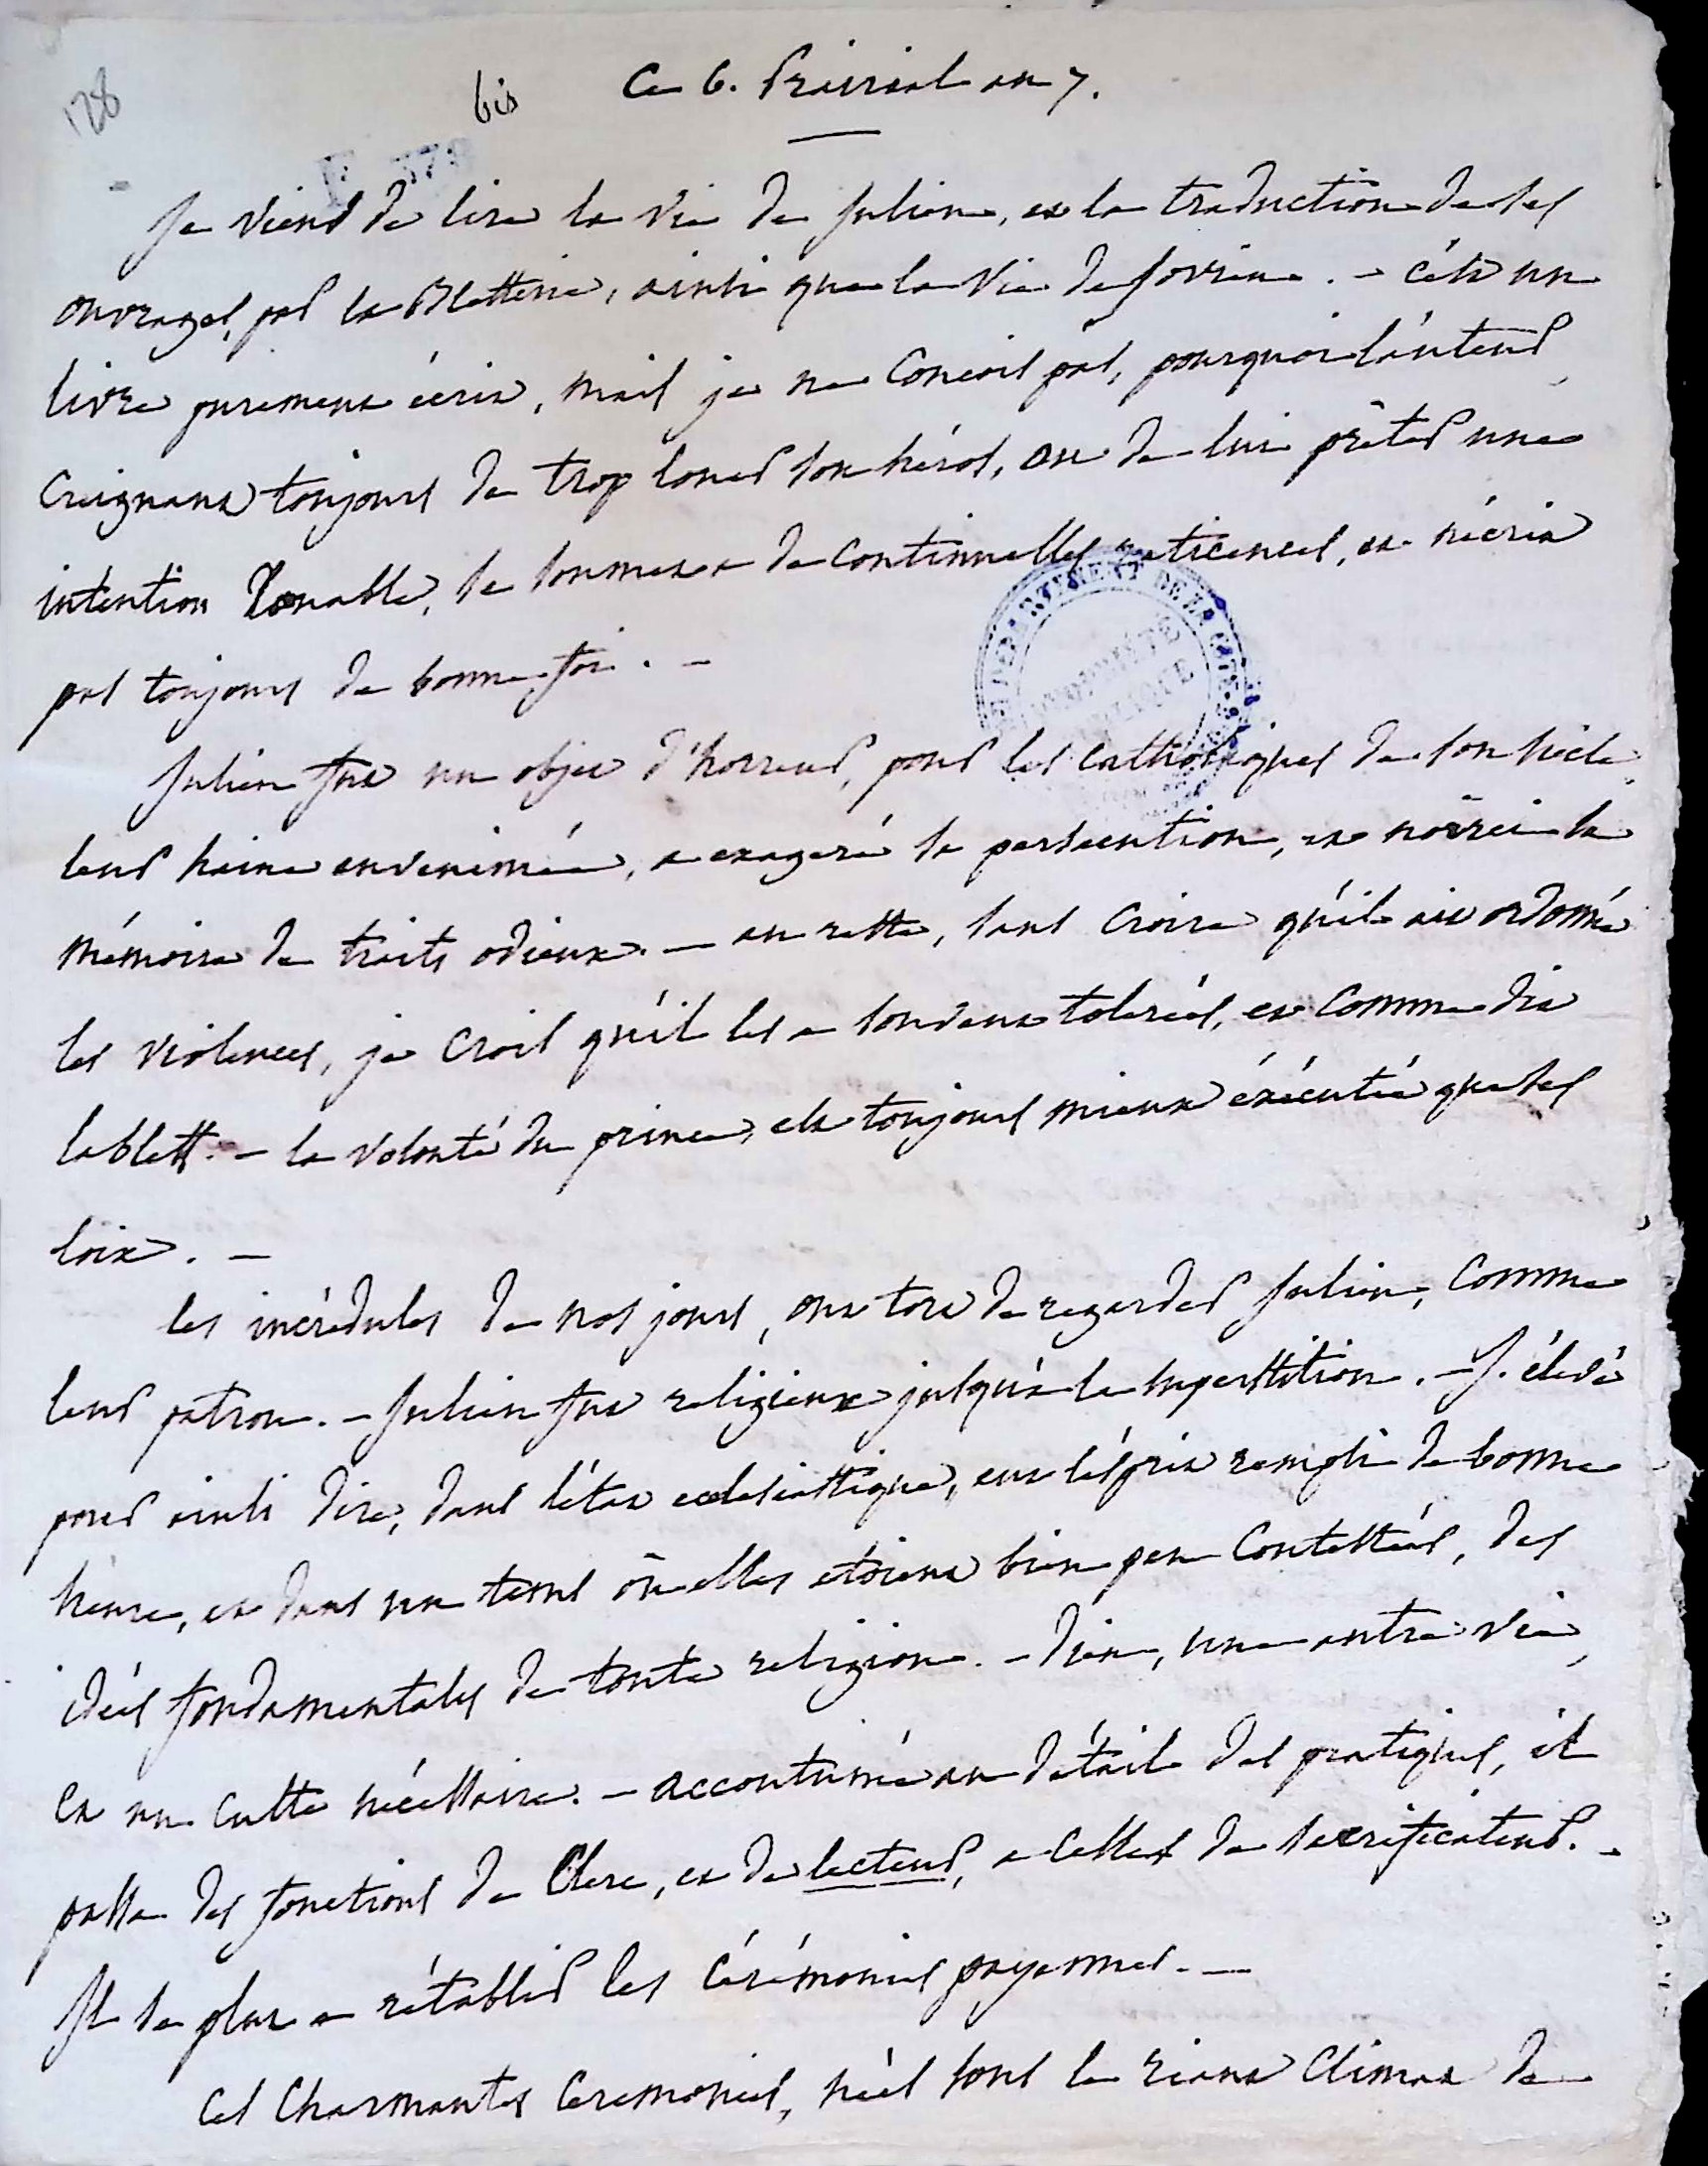 128
bis Ce 6. Prairial an 7.
Je viens de lire la vie de Julien, et la traduction de ses
ouvrages, par la Bletterie, ainsi que la vie de Jovien. - c'est un
livre purement écrit, mais je ne conçois pas, pourquoi l'auteur,
craignant toujours de trop louer son héros, ou de lui prêter une
intention louable, se soumet a de continuelles réticences, et n'écrit
pas toujours de bonne foi. -
Julien fut un objet d'horreur, pour les catholiques de son siècle,
leur haine envenimée, a exageré sa persécution, et noirci sa
mémoire de traits odieux. - au reste, sans croire qu'il ait ordonné
les violences, je crois qu'il les a souvent tolerées, et comme dit
la blett. - la volonté du prince, est toujours mieux éxécutée que ses
loix. -
les incrédules de nos jours, ont tort de regarder Julien, comme
leur patron. - Julien fut religieux jusqu'à la superstition. - J. élevé
pour ainsi dire, dans l'état ecclesiastique, eut l'esprit rempli de bonne
heure, et dans un tems où elles etoient bien peu contestées, des
idées fondamentales de toute religion. - Dieu, une autre vie,
et un culte nécessaire. - accoutumé au détail des pratiques, il
passa des fonctions de Clerc, et de lecteur, a celles de sacrificateur. -
Il se plut a rétablir les cérémonies payennes. -
Ces charmantes ceremonies, nées sous le riant climat de